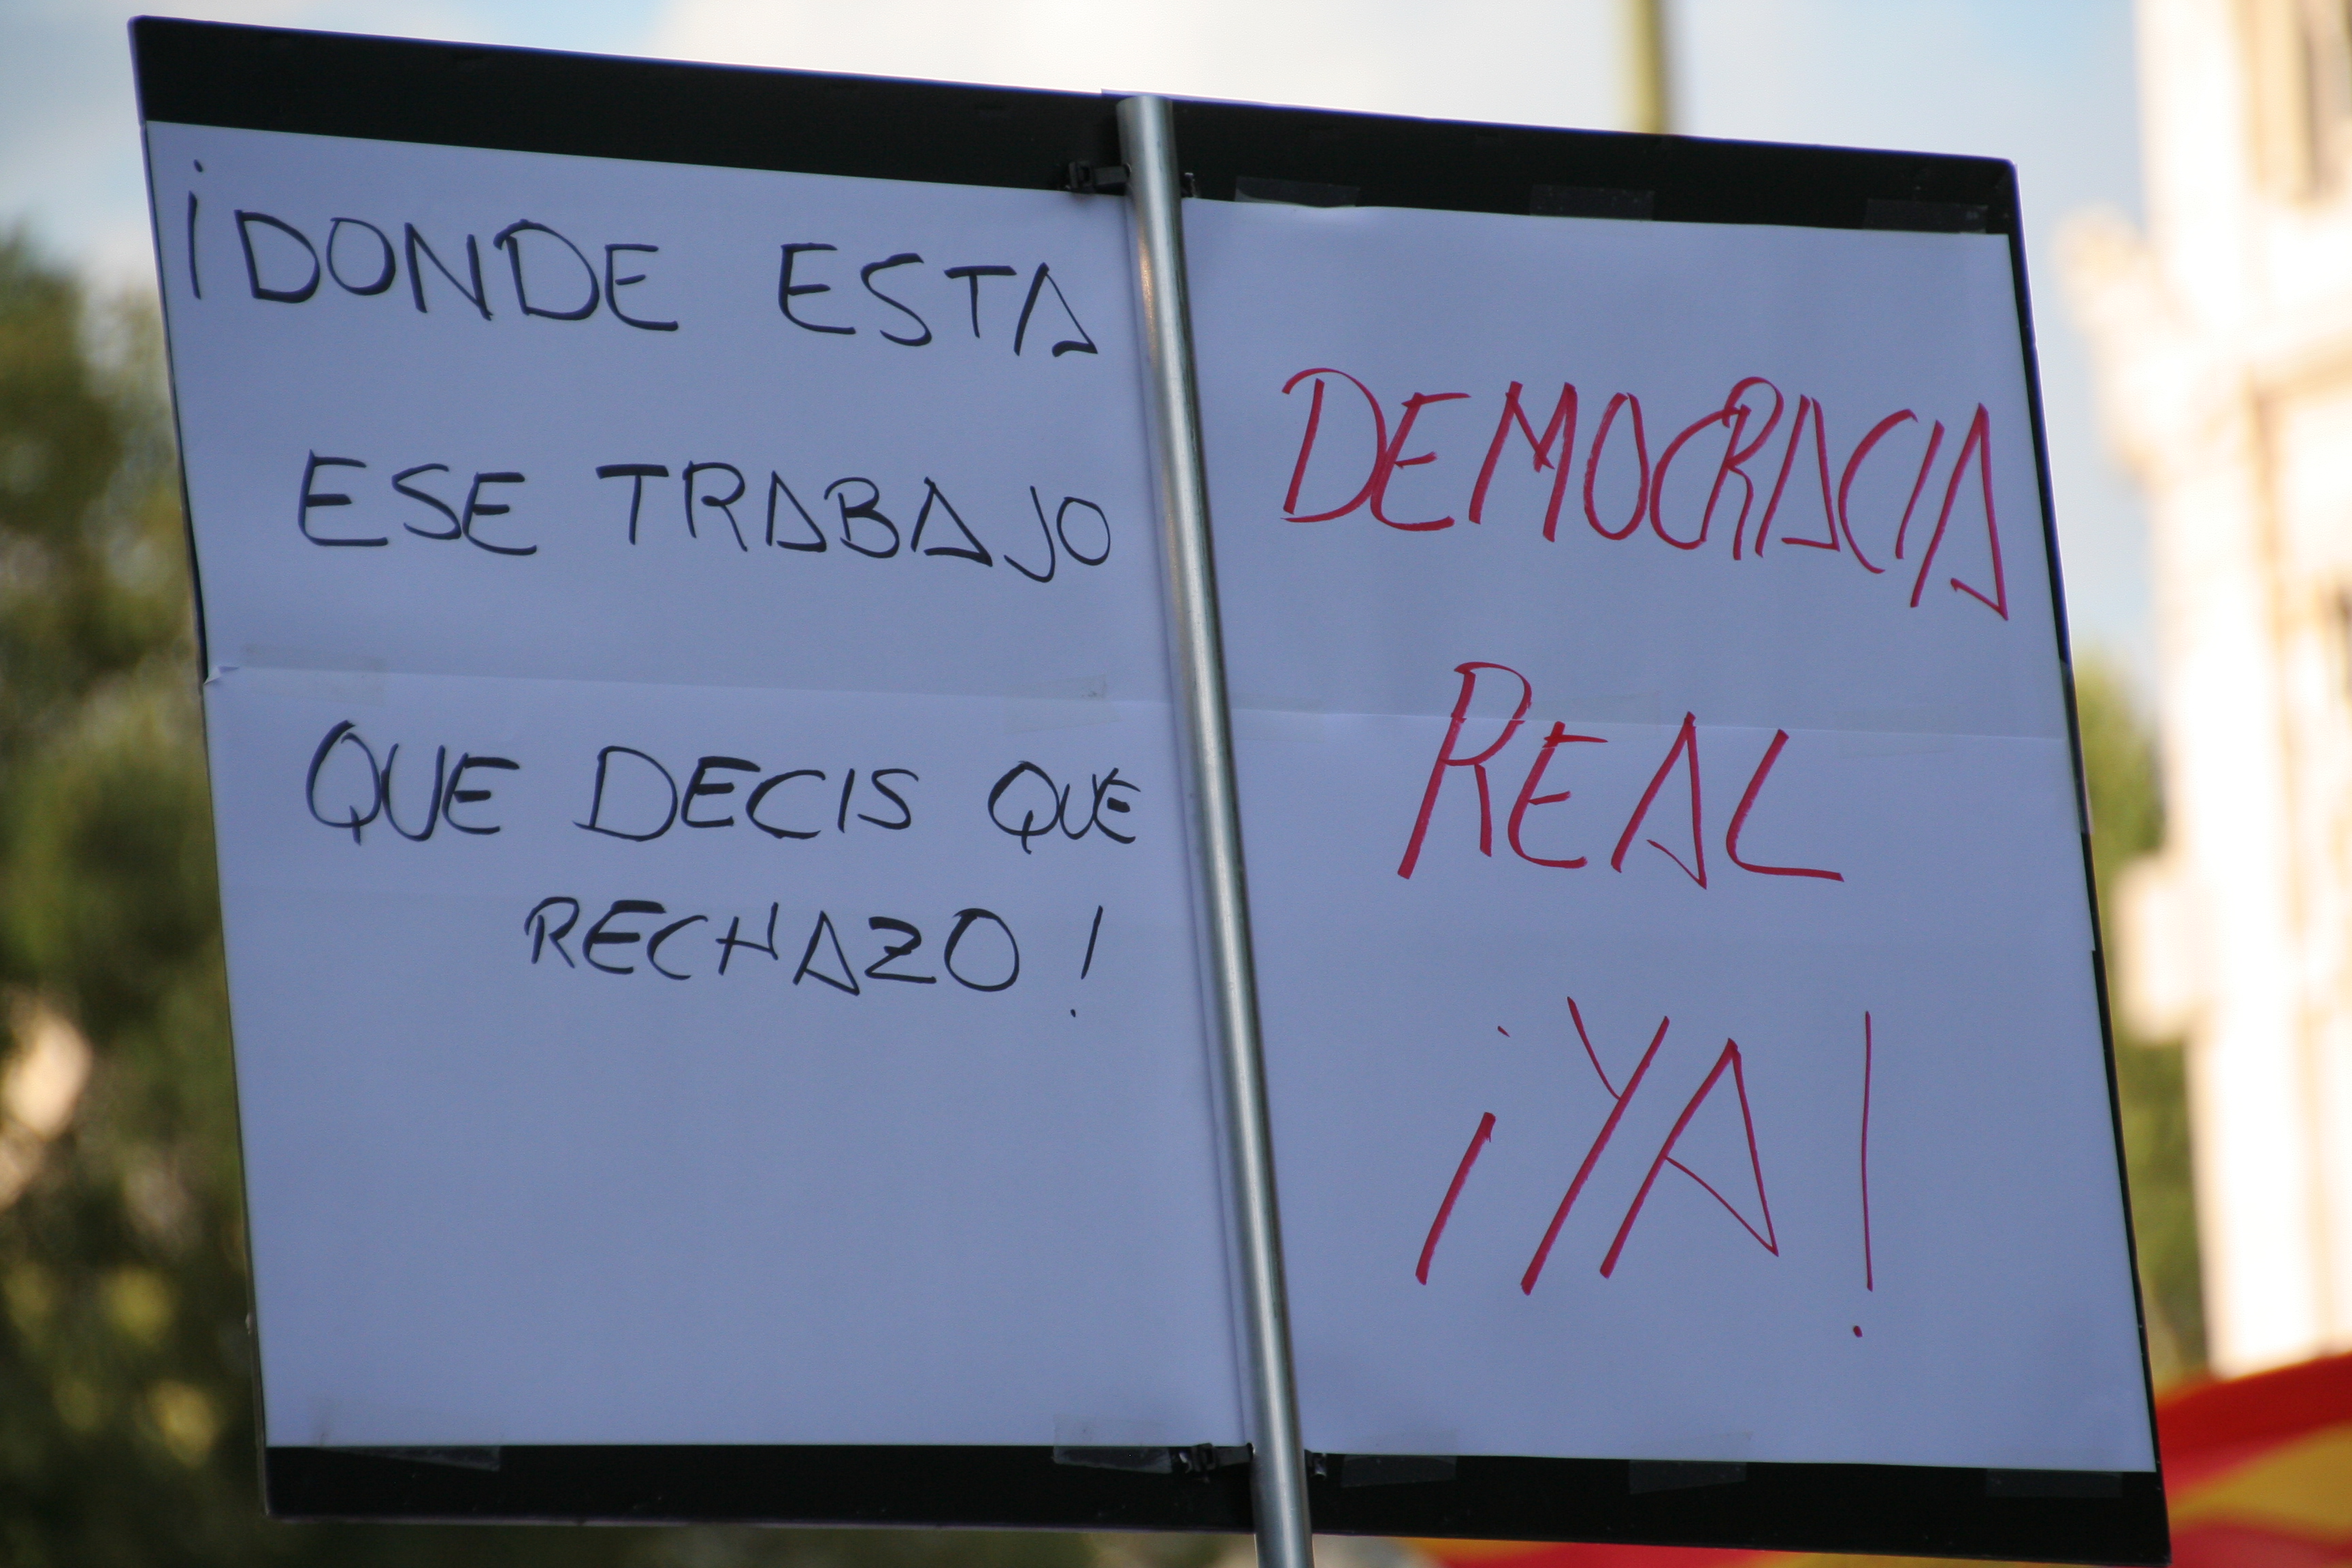 ¡DONDE ESTA
ESE TRABAJO
QUE DECIS QUE
RECHAZO!
DEMOCRACIA
REAL
¡YA!